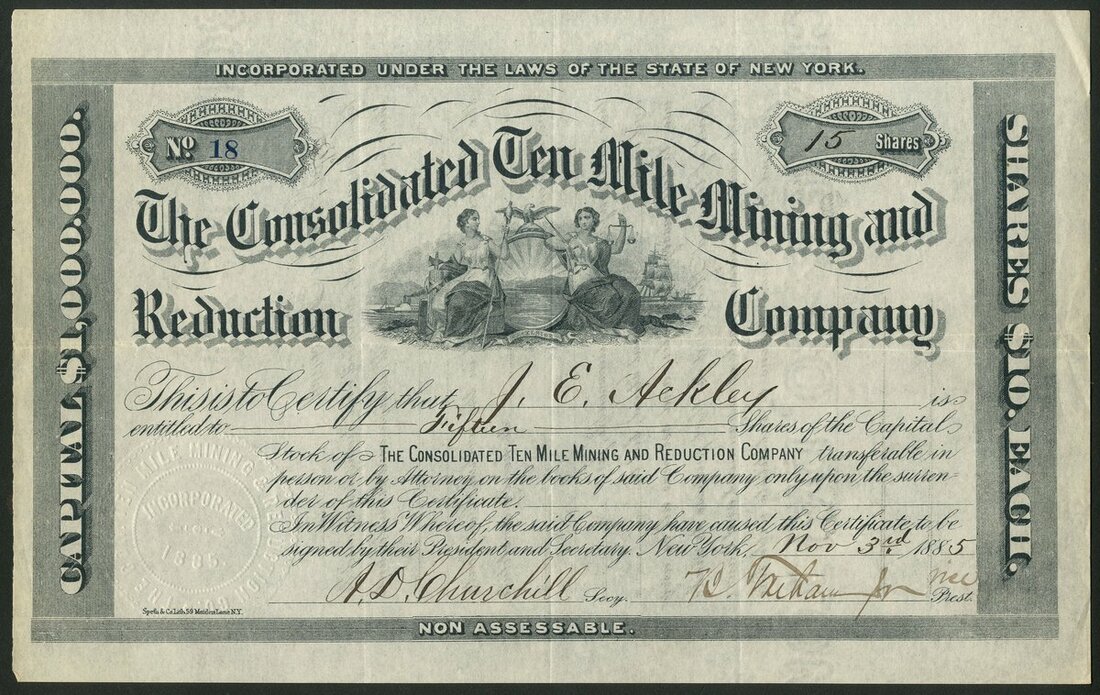 INCORPORATED UNDER THE LAWS OF THE STATE OF NEW YORK.
No. 18
15 Shares
The Consolidated Ten Mile Mining and
Reduction Company
CAPITAL $1,000.000.
SHARES $10. EACH.
This is to Certify that J. E. Ackley is
entitled to Fifteen Shares of the Capital
Stock of THE CONSOLIDATED TEN MILE MINING AND REDUCTION COMPANY transferable in
person or by Attorney on the books of said Company only upon the surren-
der of this Certificate.
In Witness Whereof, the said Company have caused this Certificate to be
signed by their President and Secretary. New York, Nov 3rd 1885
J. D. Churchill Secy. Jr Vice Prest.
MILE MINING &
INCORPORATED
1885
Lith. 59 Maiden Lane N.Y.
NON ASSESSABLE.